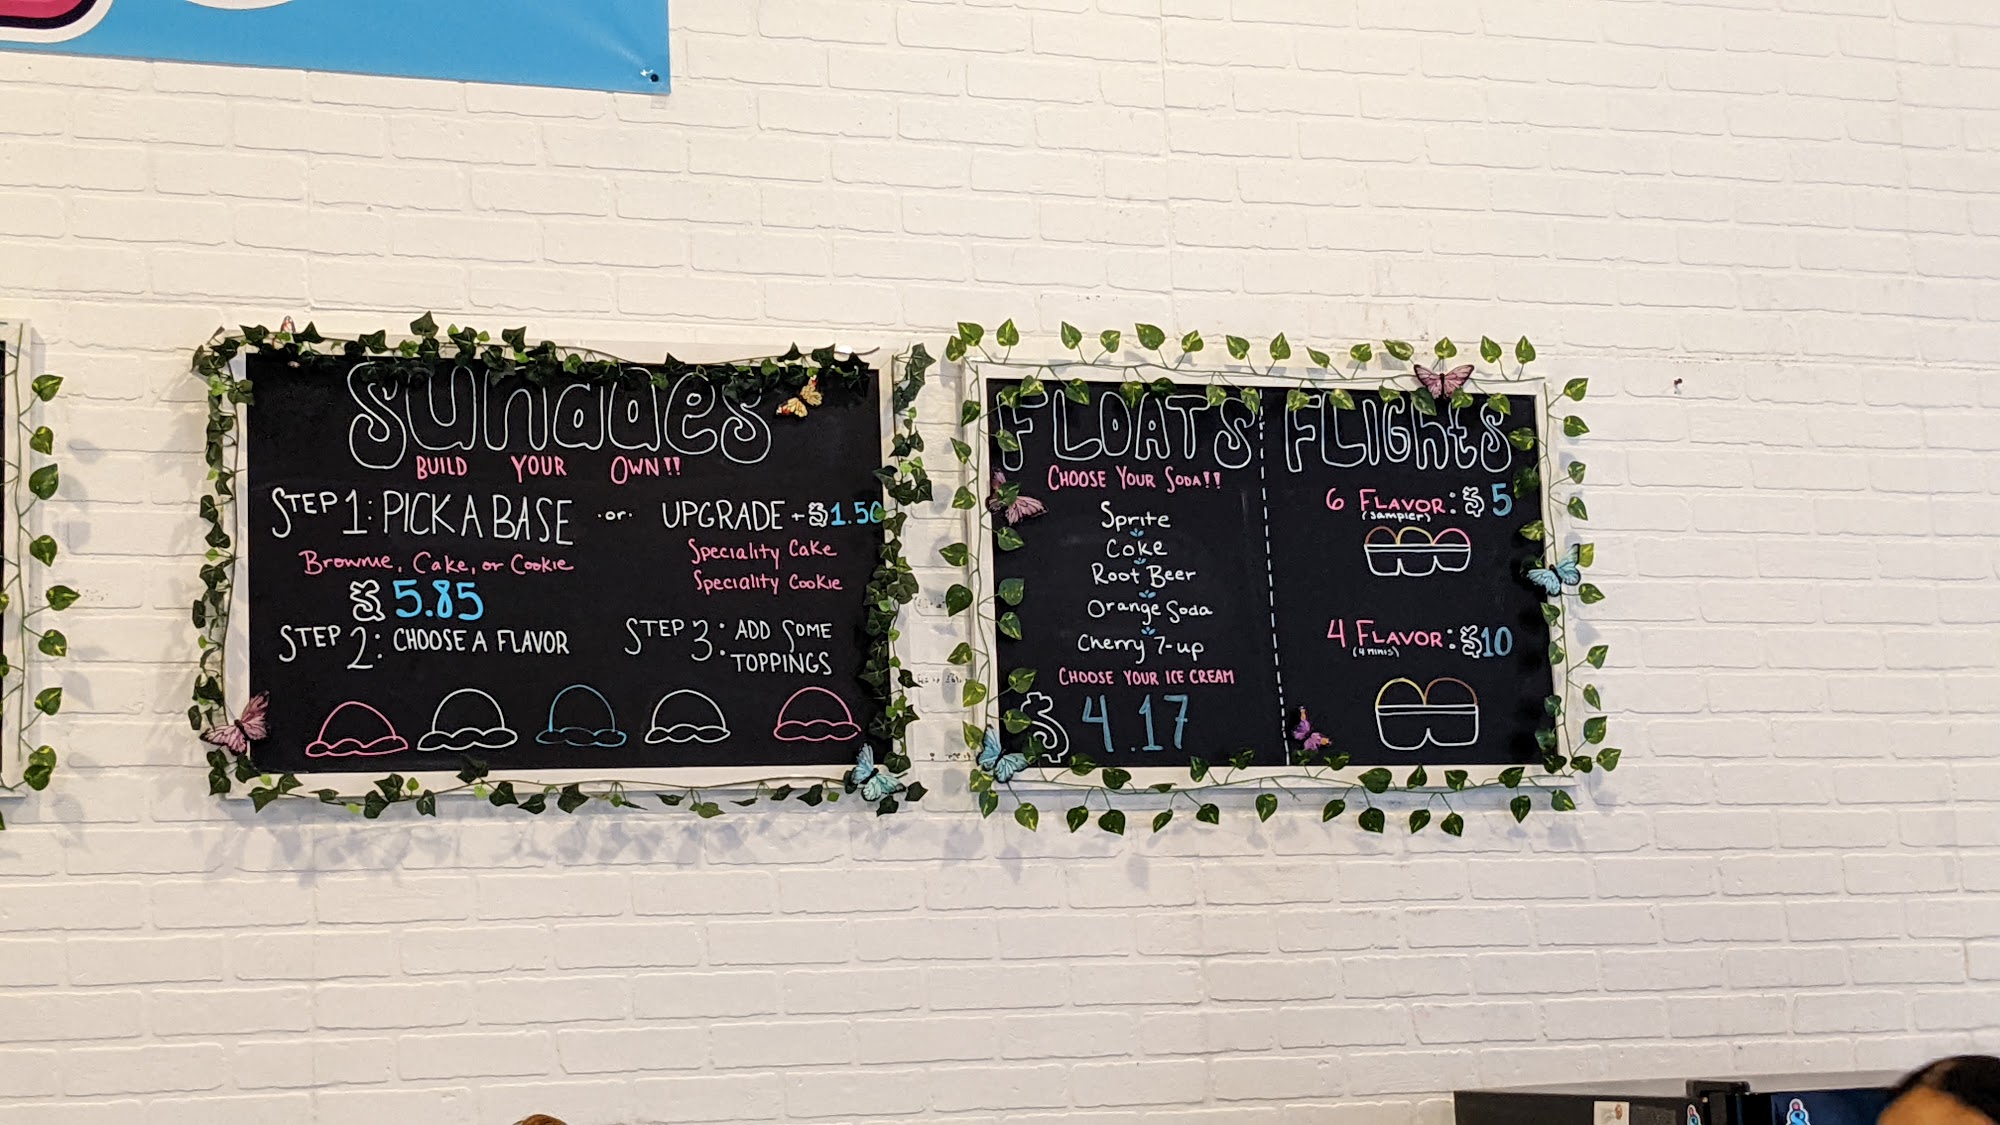 Sundaes
BUILD YOUR OWN!!
STEP 1: PICK A BASE ·or· UPGRADE + $1.50
Brownie, Cake, or Cookie
$5.85
Speciality Cake
Speciality Cookie
STEP 2: CHOOSE A FLAVOR
STEP 3: ADD SOME
TOPPINGS
FLOATS
CHOOSE YOUR SODA!!
Sprite
Coke
Root Beer
Orange Soda
Cherry 7-up
CHOOSE YOUR ICE CREAM
$4.17
FLIGHTS
6 FLAVOR: $5
(sampler)
4 FLAVOR: $10
(4 minis)